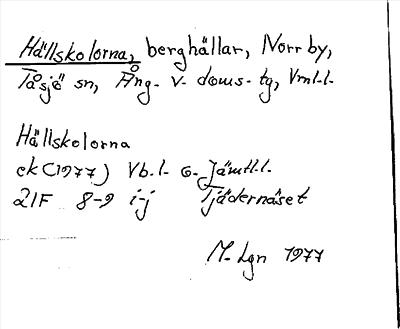 Hällskolorna, berghällar, Norrby,
Tåsjö sn, Ång. v. doms. tg, Vml.l.
Hällskolorna
ek (1977) Vb.l. o. Jämtl.l.
21F 8-9 i-j Tjädernäset
M. Lgn 1977